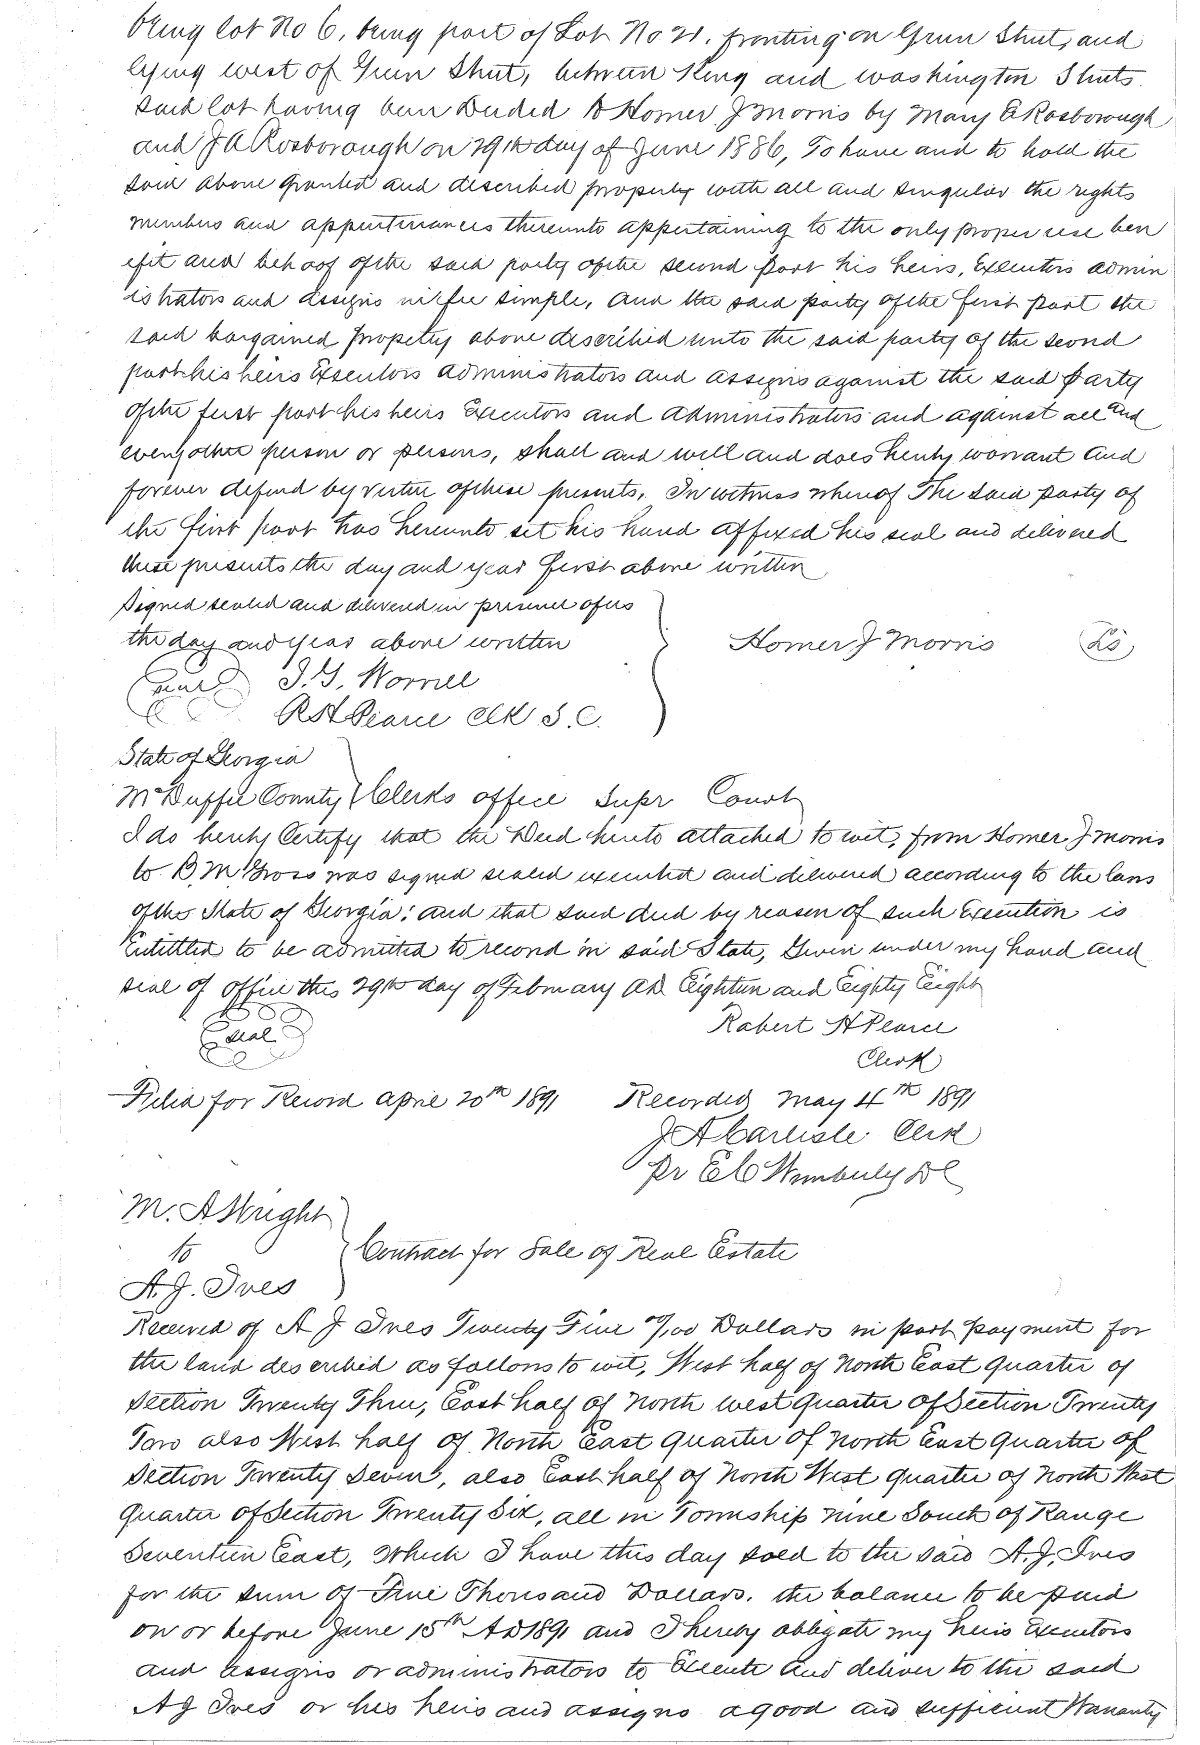 being lot No 6, being part of Lot No 21, fronting on Green Street, and
lying west of Green Street, between King and Washington Streets.
said lot having been Deeded to Homer J Morris by Mary E Rosborough
and J A Rosborough on 29th day of June 1886, To have and to hold the
said above granted and described property with all and singular the rights
members and appurtenances thereunto appertaining to the only proper use ben
efit and behoof of the said party of the second part his heirs, Executors admin
istrators and assigns in fee simple, and the said party of the first part the
said bargained property above described unto the said party of the second
part his heirs Executors administrators and assigns against the said party
of the first part his heirs Executors and administrators and against all and
every other person or persons, shall and will and does hereby warrant and
forever defend by virtue of these presents, In witness whereof The said party of
the first part has hereunto set his hand affixed his seal and delivered
these presents the day and year first above written
Signed sealed and delivered in presence of us
the day and year above written
Homer J Morris LS
Seal J. G. Worrill
R H Pearce Clk S. C.
State of Georgia
McDuffie County Clerks office Supr Court
I do hereby Certify that the Deed hereto attached to wit, from Homer J Morris
to B. M Gross was signed sealed executed and delivered according to the laws
of the State of Georgia; and that said deed by reason of such Execution is
Entittled to be admitted to record in said State, Given under my hand and
seal of office this 29th day of February AD Eighteen and Eighty Eight
Seal
Robert H Pearce
Clerk
Filed for Record April 20th 1891 Recorded May 4th 1891
J A Carlisle Clerk
Pr E C Wimberly D C
M. A Wright
to
Contract for Sale of Real Estate
A. J. Ives
Received of A J Ives Twenty Five 0/00 Dollars in part payment for
the land described as follows to wit, West half of North East quarter of
Section Twenty Three, East half of North west quarter of Section Twenty
Two also West half of North East quarter of North East quarter of
Section Twenty Seven, also East half of North West quarter of North West
quarter of Section Twenty Six, all in Township nine South of Range
Seventeen East, Which I have this day sold to the said A. J. Ives
for the sum of Five Thousand Dollars. the balance to be paid
on or before June 15th AD 1891 and I hereby obligate my heirs Executors
and assigns or administrators to Execute and deliver to the said
A J Ives or his heirs and assigns a good and sufficient Warranty